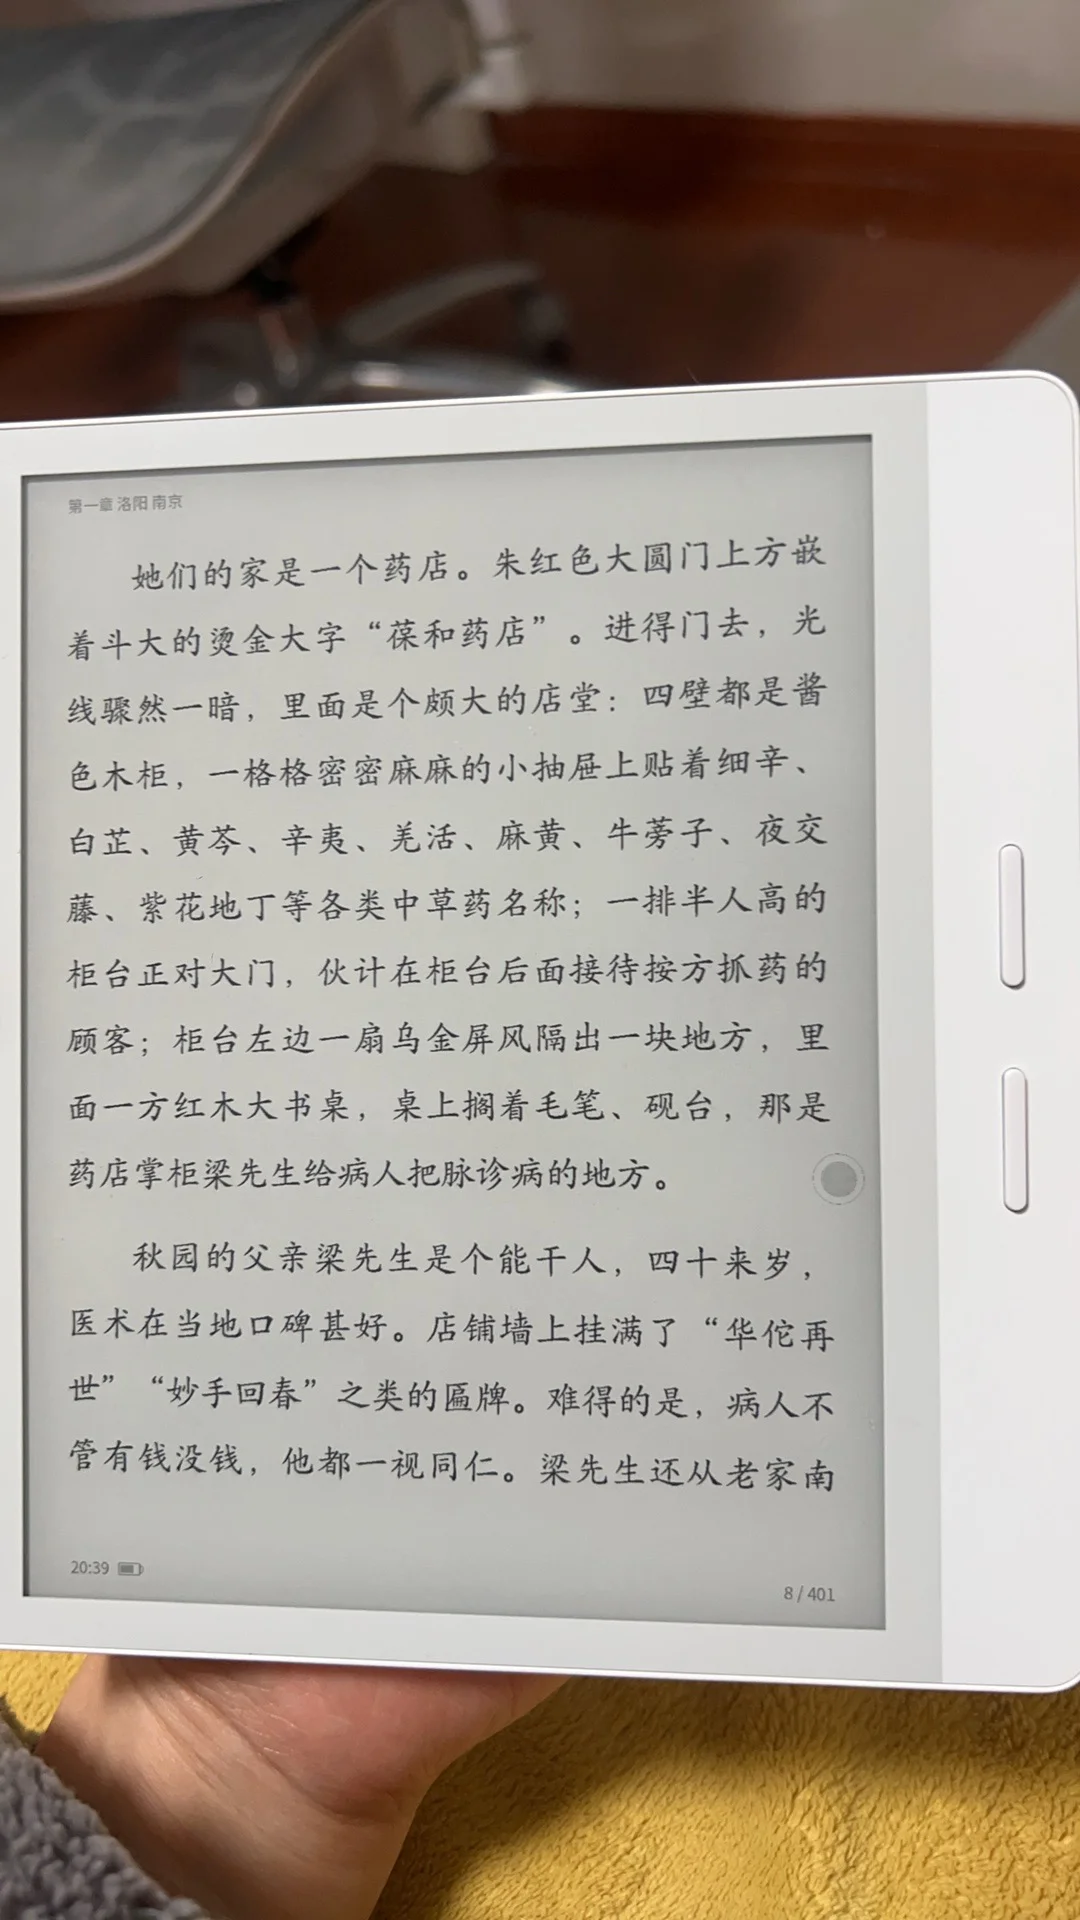 第一章 洛阳 南京
她们的家是一个药店。朱红色大圆门上方嵌
着斗大的烫金大字“葆和药店”。进得门去，光
线骤然一暗，里面是个颇大的店堂：四壁都是酱
色木柜，一格格密密麻麻的小抽屉上贴着细辛、
白芷、黄芩、辛夷、羌活、麻黄、牛蒡子、夜交
藤、紫花地丁等各类中草药名称；一排半人高的
柜台正对大门，伙计在柜台后面接待按方抓药的
顾客；柜台左边一扇乌金屏风隔出一块地方，里
面一方红木大书桌，桌上搁着毛笔、砚台，那是
药店掌柜梁先生给病人把脉诊病的地方。
秋园的父亲梁先生是个能干人，四十来岁，
医术在当地口碑甚好。店铺墙上挂满了“华佗再
世”“妙手回春”之类的匾牌。难得的是，病人不
管有钱没钱，他都一视同仁。梁先生还从老家南
20:39
8 / 401